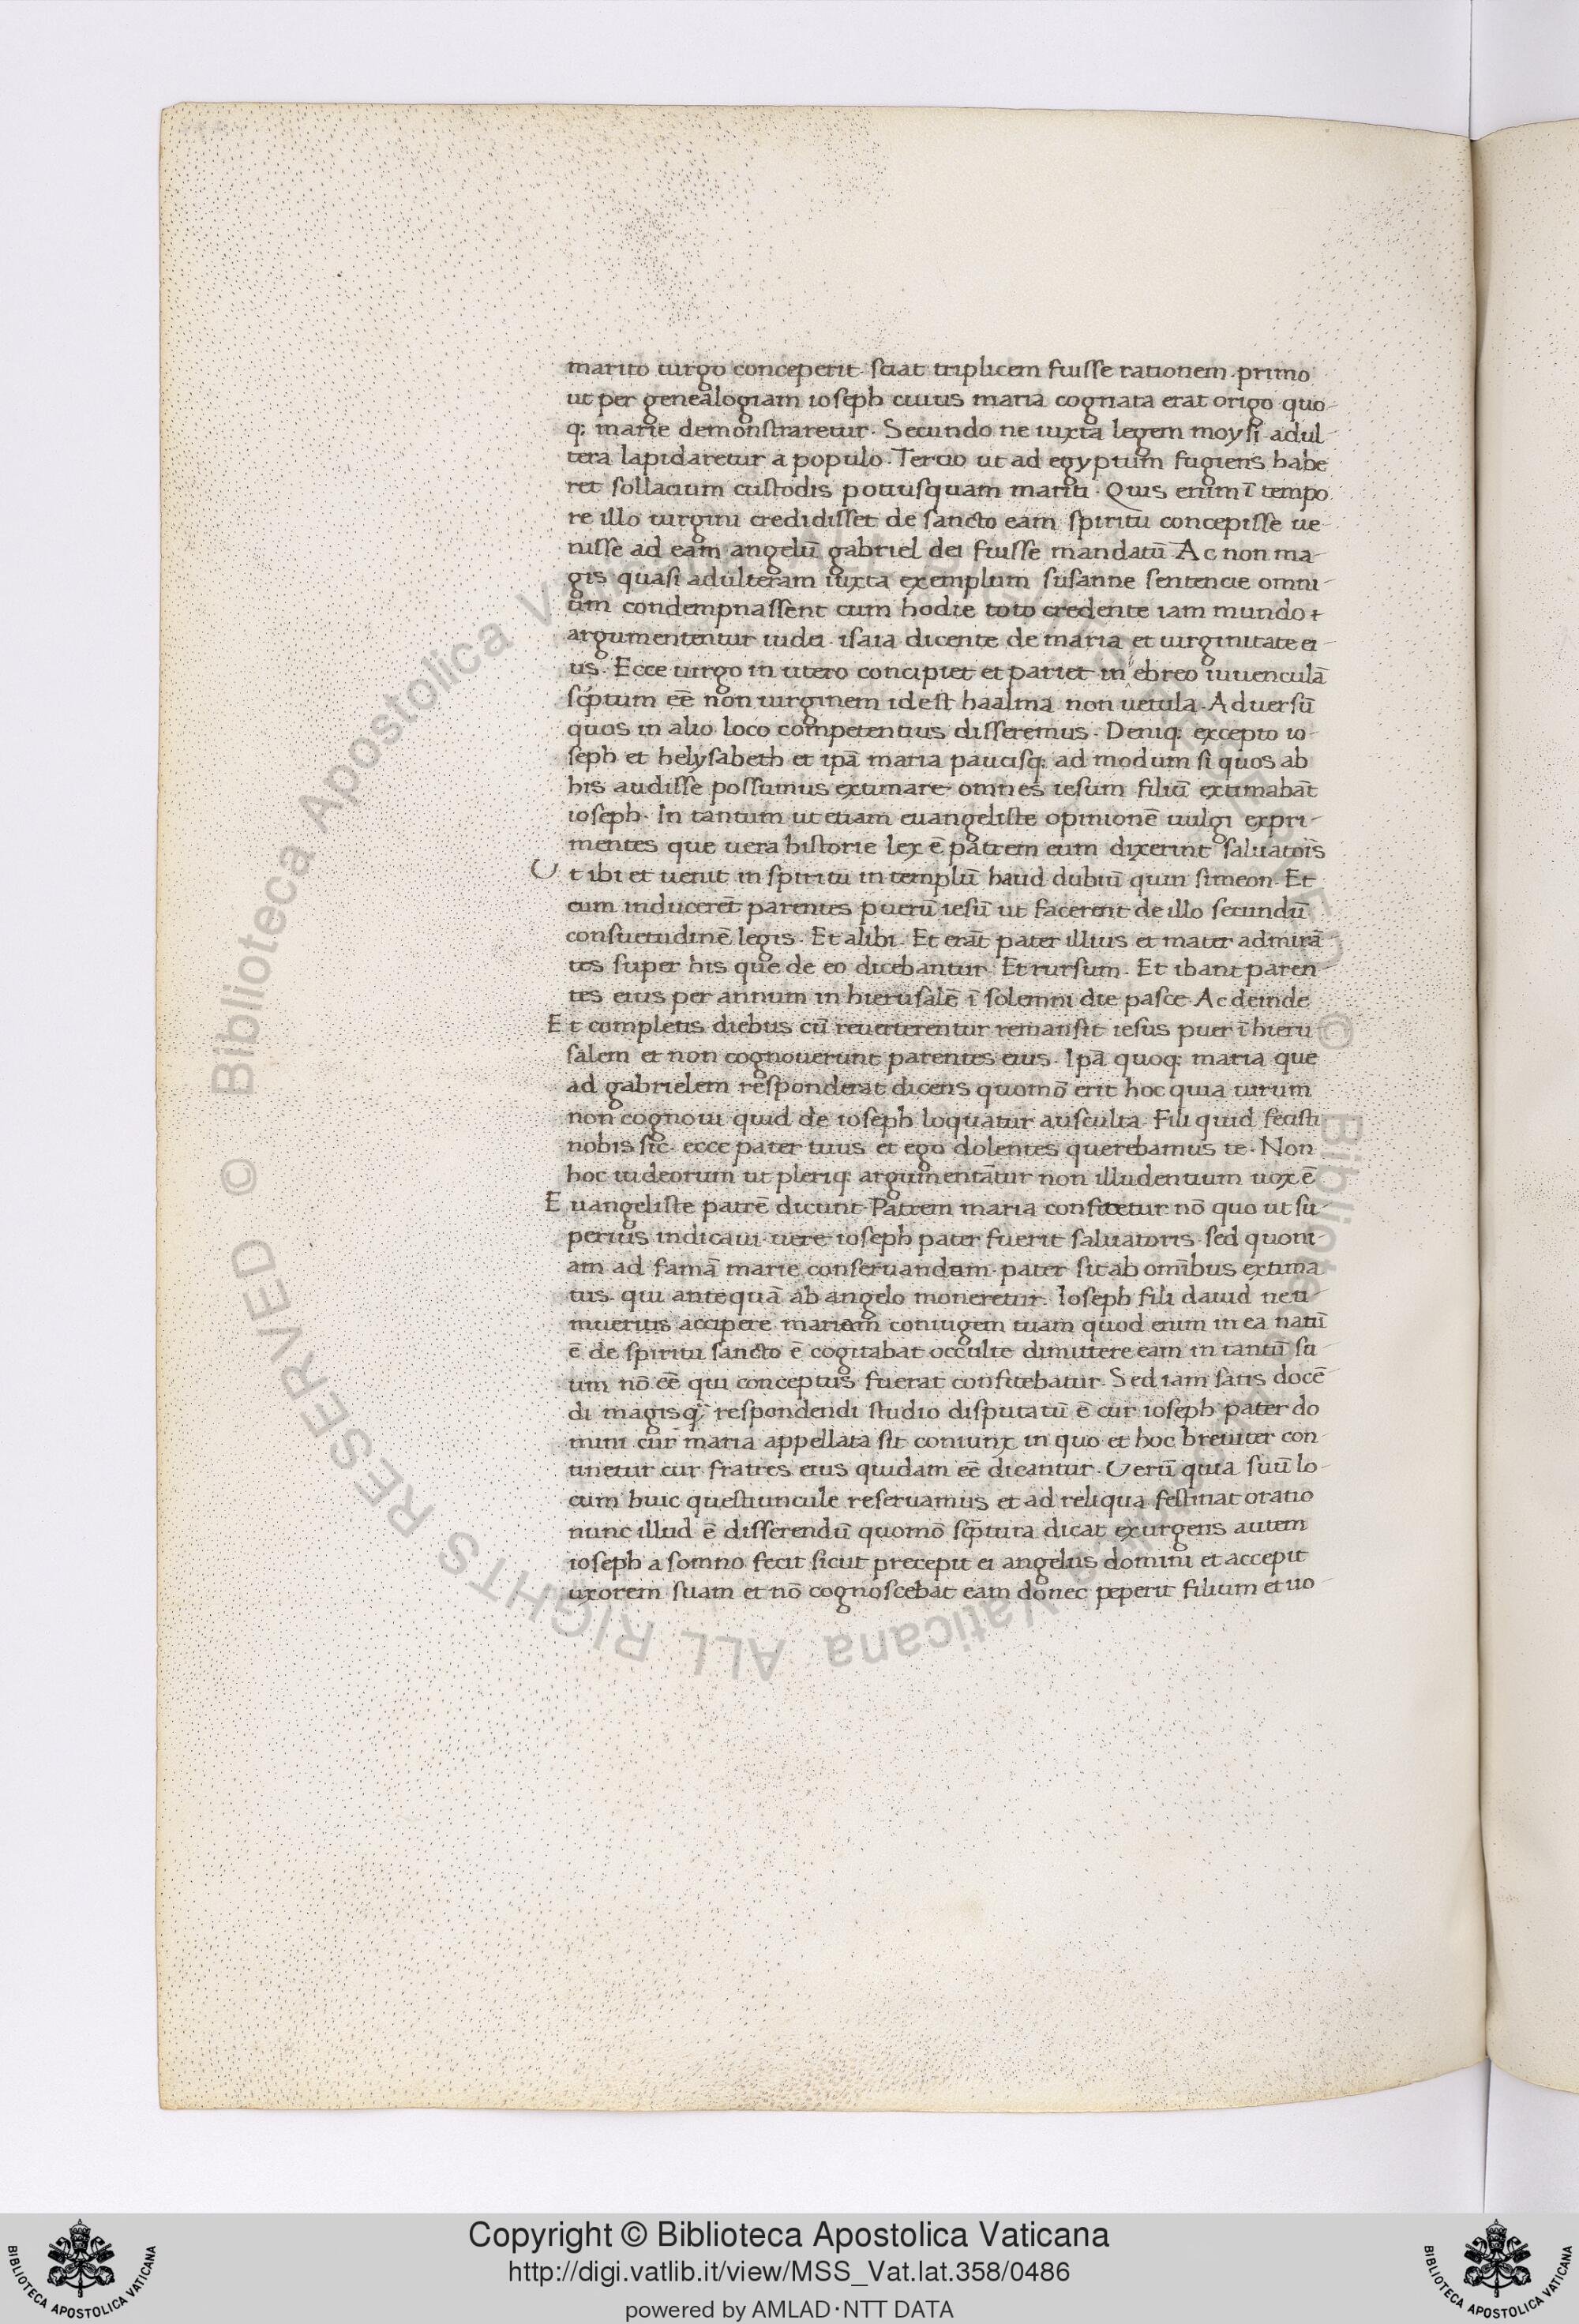 marito uirgo conceperit. sciat triplicem fuisse rationem. primo
ut per genealogiam ioseph cuius maria cognata erat origo quo-
q; marie demonstraretur. Secundo ne iuxta legem moysi adul-
tera lapidaretur a populo. Tercio ut ad egyptum fugiens habe
ret sollacium custodis potiusquam mariti. Quis enim ī tempo
re illo uirgini credidisset de sancto eam spiritu concepisse ue-
nisse ad eam angelū gabriel dei fuisse mandatū. Ac non ma-
gis quasi adulteram iuxta exemplum susanne sentencie omni-
um condempnassent cum hodie toto credente iam mundo
argumententur iudei. isaia dicente de maria et uirginitate ei-
us. Ecce uirgo in utero concipiet et pariet in ebreo iuuenculā
scp̄tum eē non uirginem id est haalma non uetula. Aduersū
quos in alio loco competentius disseremus. Deniq; excepto io-
seph et helysabeth et ipā maria paucisq; ad modum si quos ab
his audisse possumus extimare omnes iesum filiū extimabāt
ioseph. In tantum ut etiam euangeliste opinionē uulgi expri-
mentes que uera historie lex ē patrem eum dixerint saluatoīs
Ut ibi et uenit in spiritu in templū haud dubiū quin simeon. Et
cum inducerēt parentes puerū iesū ut facerent de illo secundū
consuetudinē legis. Et alibi. Et erāt pater illius et mater admirā
tes super his que de eo dicebantur. Et rursum. Et ibant paren-
tes eius per annum in hierusalē ī solemni die pasce. Ac deinde
Et completis diebus cū reuerterentur remansit iesus puer ī hieru
salem et non cognouerunt parentes eius. Ipā quoq; maria que
ad gabrielem responderat dicens quomō erit hoc quia uirum
non cognoui quid de ioseph loquatur ausculta. Fili quid fecisti
nobis sic. ecce pater tuus et ego dolentes querebamus te. Non
hoc iudeorum ut pleriq; argumentātur non illudentium uox ē
Euangeliste patrē dicunt. Patrem maria confitetur nō quo ut su-
perius indicaui. uere ioseph pater fuerit saluatoris. sed quoni-
am ad famā marie conseruandam. pater sit ab omībus extima
tus. qui antequā ab angelo moneretur. Ioseph fili dauid ne ti-
mueritis accipere mariam coniugem tuam quod enim in ea natū
ē de spiritu sancto ē cogitabat occulte dimittere eam in tantū su-
um nō eē qui conceptus fuerat confitebatur. Sed iam satis docē
di magisq; respondendi studio disputatū ē cur ioseph pater do
mini cur maria appellata sit coniunx in quo et hoc breuiter con-
tinetur cur fratres eius quidam eē dicantur. Uerū quia suū lo-
cum huic questiuncule reseruamus et ad reliqua festinat oratio
nunc illud ē disserendū quomō scp̄tura dicat exurgens autem
ioseph a somno fecit sicut precepit ei angelus domini et accepit
uxorem suam et nō cognoscebat eam donec peperit filium et uo-
© Biblioteca Apostolica Vaticana ALL RIGHTS RESERVED
© Biblioteca Apostolica Vaticana ALL RIGHTS RESERVED
Copyright © Biblioteca Apostolica Vaticana
http://digi.vatlib.it/view/MSS_Vat.lat.358/0486
powered by AMLAD·NTT DATA
BIBLIOTECA APOSTOLICA VATICANA
BIBLIOTECA APOSTOLICA VATICANA